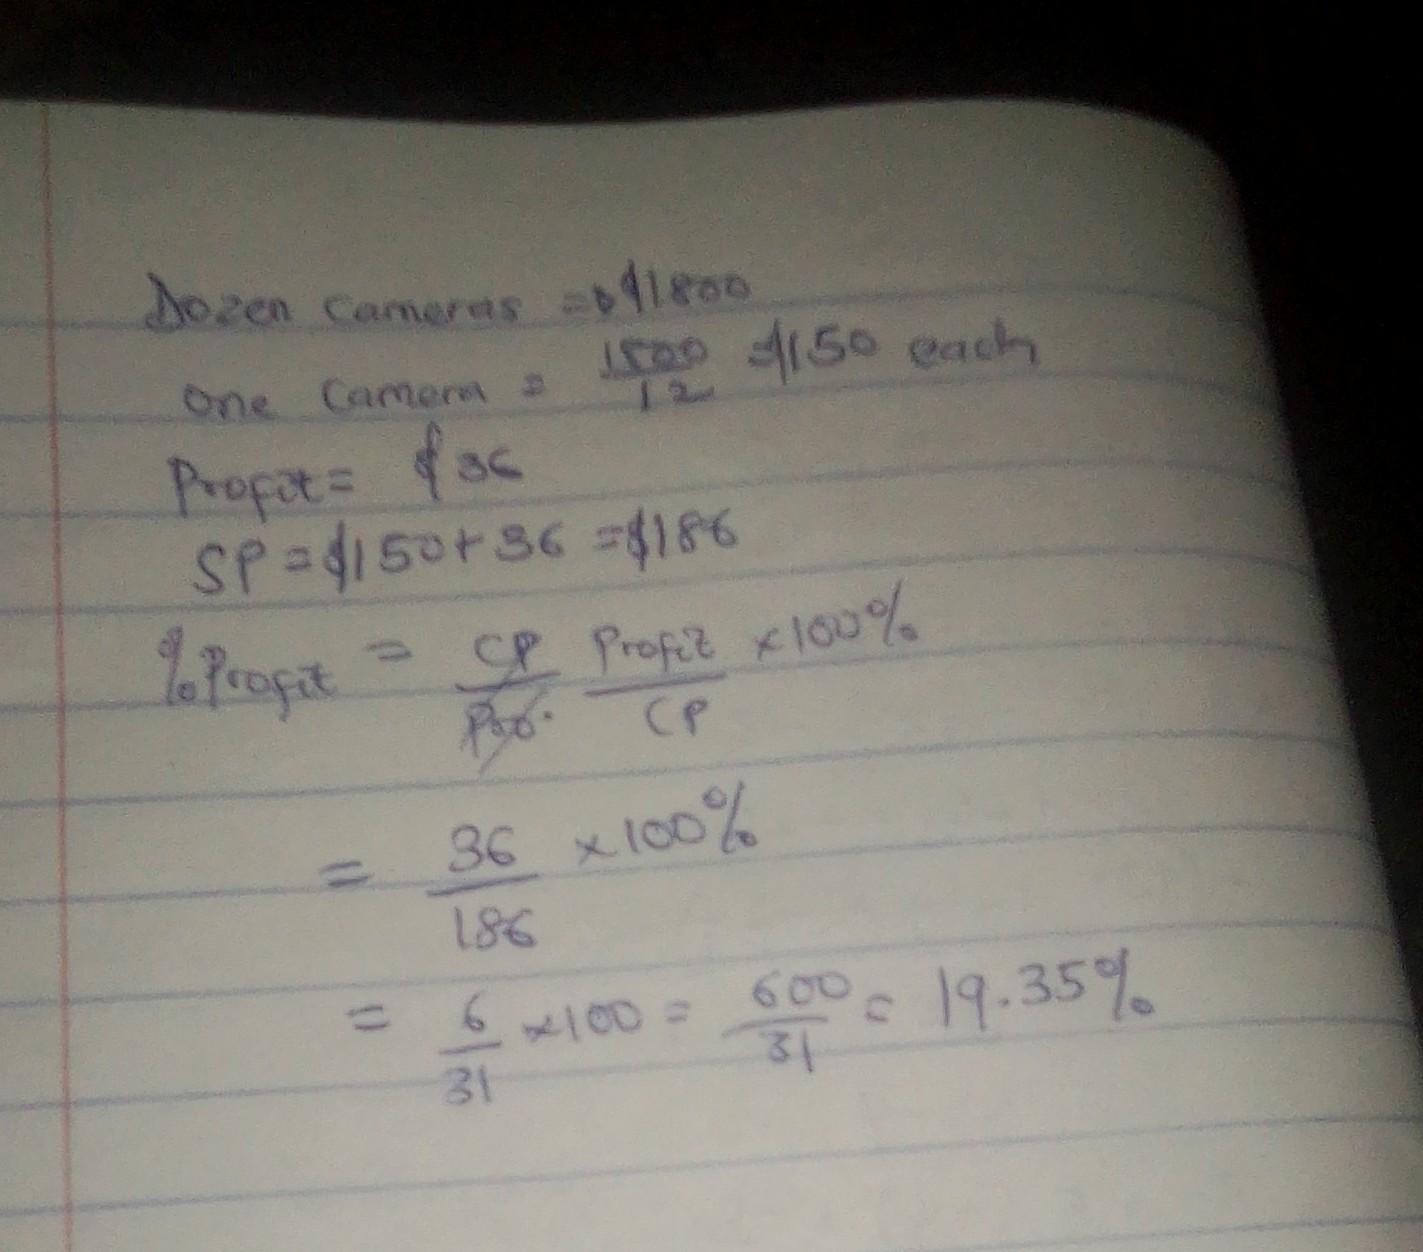 Dozen cameras = $1800
one Camera = 1800/12 = $150 each
Profit = $36
SP = $150 + 36 = $186
% Profit = CP/Pro. Profit/CP × 100%
= 36/186 × 100%
= 6/31 × 100 = 600/31 = 19.35%